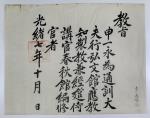 教旨
申一永為通訓大
夫行弘文館應教
知製教兼經筵侍
講官春秋館編修
官者
光緒七年十月 日